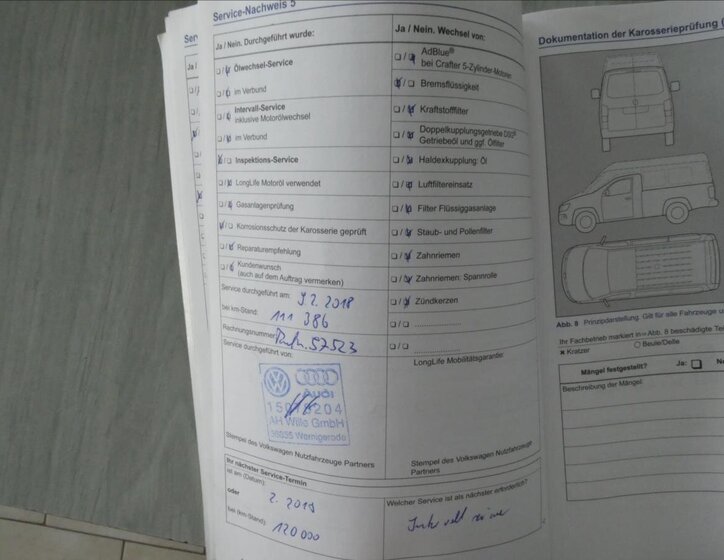 Service-Nachweis 5
Ja / Nein. Durchgeführt wurde:
Ölwechsel-Service
im Verbund
Intervall-Service
inklusive Motorölwechsel
im Verbund
Inspektions-Service
LongLife Motoröl verwendet
Gasanlagenprüfung
Korrosionsschutz der Karosserie geprüft
Reparaturempfehlung
Kundenwunsch
(auch auf dem Auftrag vermerken)
Service durchgeführt am: 9.2. 2018
bei km-Stand: 111 386
Rechnungsnummer: 57523
Service durchgeführt von:
Audi
AH Wille GmbH
Wernigerode
Stempel des Volkswagen Nutzfahrzeuge Partners
Ihr nächster Service-Termin
ist am (Datum):
oder 2. 2019
bei (km-Stand): 120 000
Ja / Nein. Wechsel von:
AdBlue®
bei Crafter 5-Zylinder-Motoren
Bremsflüssigkeit
Kraftstofffilter
Doppelkupplungsgetriebe DSG®
Getriebeöl und ggf. Ölfilter
Haldexkupplung: Öl
Luftfiltereinsatz
Filter Flüssiggasanlage
Staub- und Pollenfilter
Zahnriemen
Zahnriemen: Spannrolle
Zündkerzen
LongLife Mobilitätsgarantie
Stempel des Volkswagen Nutzfahrzeuge Partners
Welcher Service ist als nächster erforderlich?
Dokumentation der Karosserieprüfung
Abb. 8 Prinzipdarstellung. Gilt für alle Fahrzeuge
Ihr Fachbetrieb markiert in Abb. 8 beschädigte
Kratzer
Beule/Delle
Mängel festgestellt? Ja:
Beschreibung der Mängel